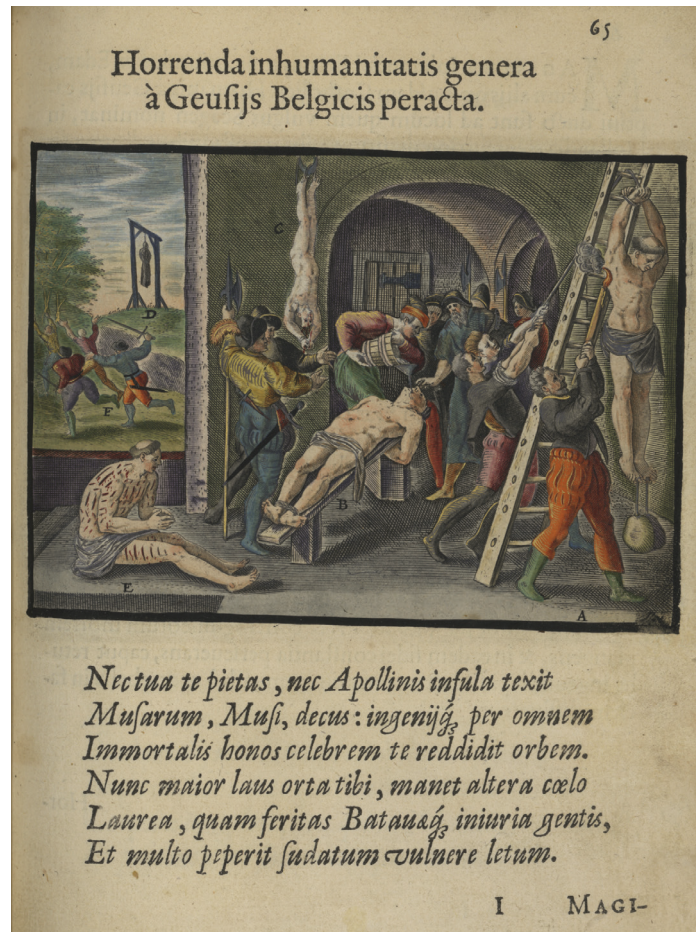 65
Horrenda inhumanitatis genera
à Geuſijs Belgicis peracta.
C
D
F
B
E
A
Nec tua te pietas, nec Apollinis infula texit
Muſarum, Muſi, decus: ingenijq́ꝫ per omnem
Immortalis honos celebrem te reddidit orbem.
Nunc maior laus orta tibi, manet altera cœlo
Laurea, quam feritas Batauæq́ꝫ iniuria gentis,
Et multo peperit ſudatum vulnere letum.
I MAGI-